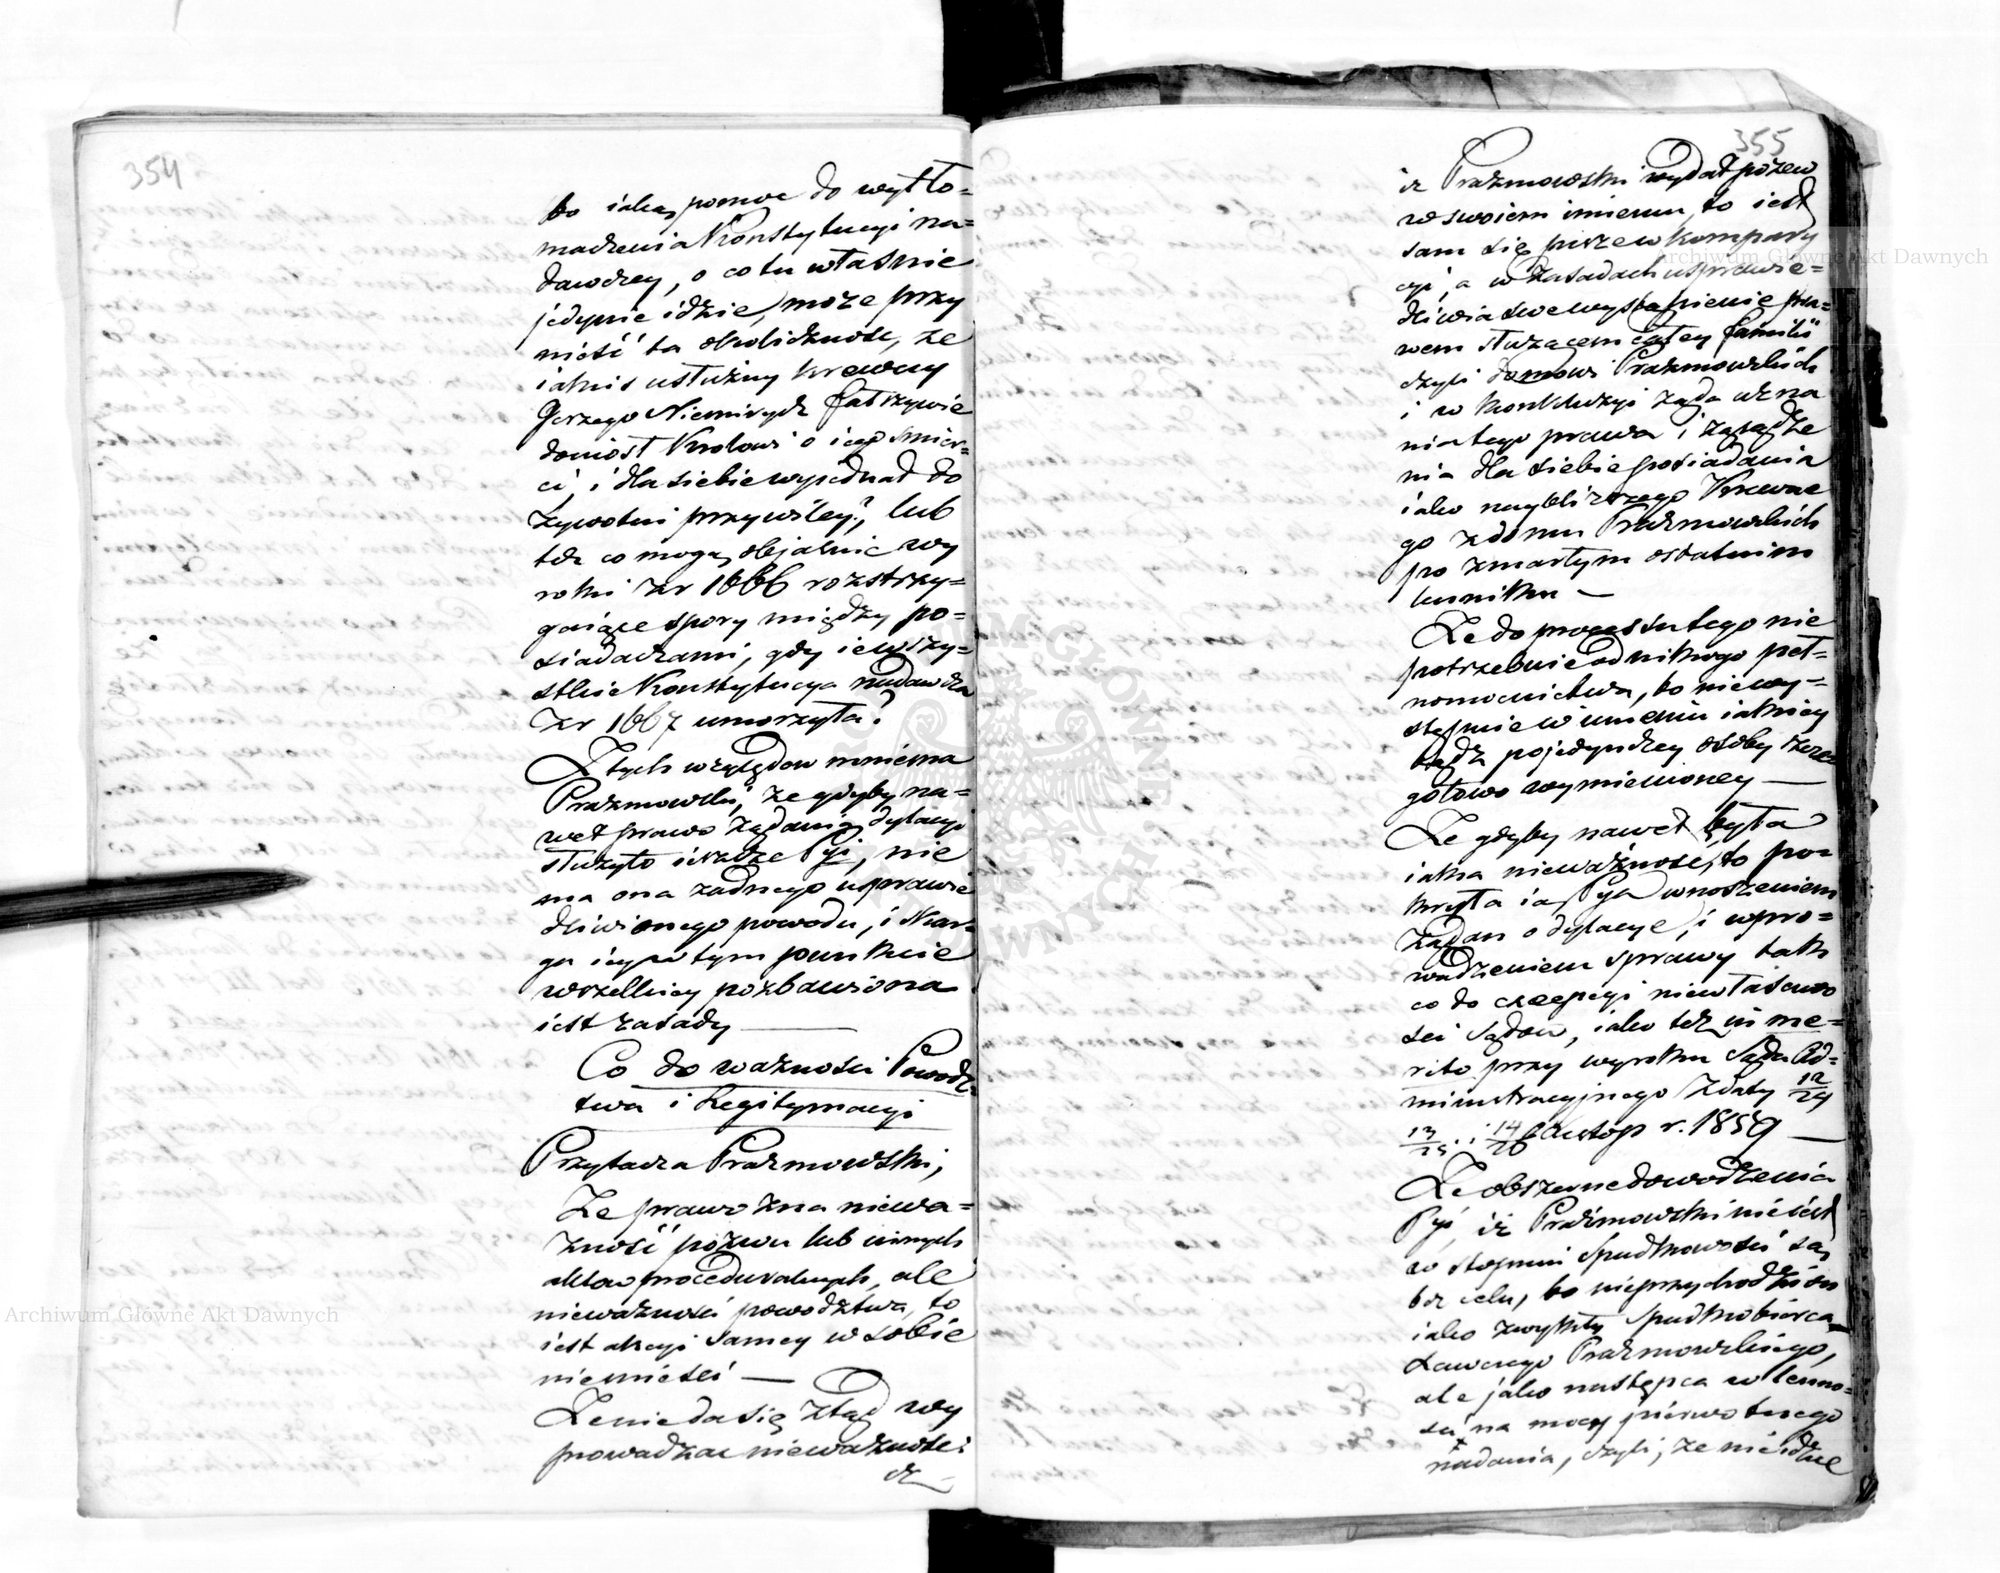 354
bo iaką pomoc do wytło=
maczenia Konstytucyi na=
dawczey, o co tu właśnie
jedynie idzie, może przy
nieść ta okoliczność, że
iakiś usłużny krewny
Jerzego Niemirycz fałszywie
doniósł Krolowi o iego śmier=
ci, i dla siebie wyjednał do
żywotni przywiley?, lub
też co mogą objaśnić wy
roki z r 1666 rozstrzy=
gaiące spory między po=
siadaczami, gdy ie wszy=
stkie Konstytucya nadawcza
z r 1667 umorzyła?
Z tych względów mniema
Prażmowski, że gdyby na=
wet prawo żądania dylacyi
służyło ieszcze Pji, nie
ma ona żadnego usprawie
dliwionego powodu, i Skar=
ga iey w tym punkcie
wszelkiey pozbawiona
iest zasady
Co do ważności Powodz
twa i Legitymacyi
Przytacza Prażmowski,
Że prawo zna niewa=
żność pozwu lub innych
aktów proceduralnych, ale
nieważności powodztwa, to
iest akcyi samey w sobie
nie mieści
Że nie da się ztąd wy
prowadzać nieważności
iż
355
iż Prażmowski wydał pozew
w swoiem imieniu, to iest
sam się pisze w kompary
cyi, a w zasadach usprawie=
dliwia swe wystąpienie pra=
wem służącem całey familii
czyli domowi Prażmowskich
i w konkluzyi żąda uzna
nia tego prawa i zasądze
nia dla siebie posiadania
iako naybliższego Krewne
go z domu Prażmowskich
po zmarłym ostatnim
lenniku
Że do processu tego nie
potrzebuie od nikogo peł=
nomocnictwa, bo nie wy=
stępuie w imieniu iakiey
bądź pojedynczey osoby szcze
gółowo wymienioney
Że gdyby nawet była
iaka nieważność, to po=
kryła ią Pja wnoszeniem
żądań o dylacye, i wpro=
wadzeniem sprawy tak
co do excepcyi niewłaściwo
ści Sądów, iako też in me=
rito przy wyroku Sądu Ad=
ministracyjnego z daty 12/24
13/25 i 14/26 Listop r. 1859
Że obszerne dowodzenia
Pji, iż Prażmowski nie iest
w stopniu Spadkowości są
bez celu, bo nie przychodzi on
iako zwykły Spadkobierca
Xawerego Prażmowskiego,
ale jako następca w lenno=
ści na mocy pierwotnego
nadania, czyli, że nie idzie